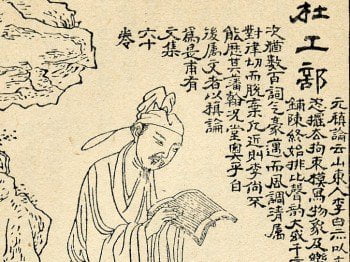 杜工部
元稹論云山東人李白亦以
恣擺去拘束模寫物象及樂
鋪陳終始排比聲韻大或千
次猶數百詞氣豪邁而風調清屬
對律切而脫棄凡近則李尚不
能歷其藩翰況堂奧乎自
後屬文者以稹論
為是甫有
文集
六十
卷